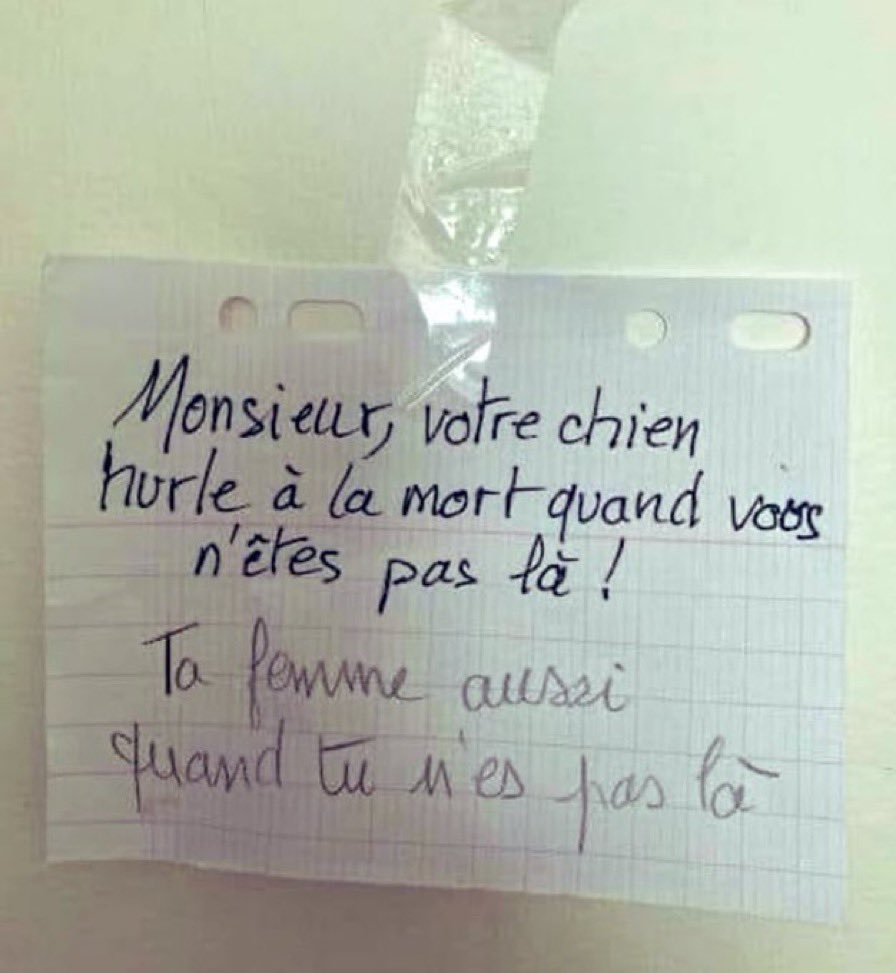 Monsieur, votre chien
hurle à la mort quand vous
n'êtes pas là !
Ta femme aussi
quand tu n'es pas là